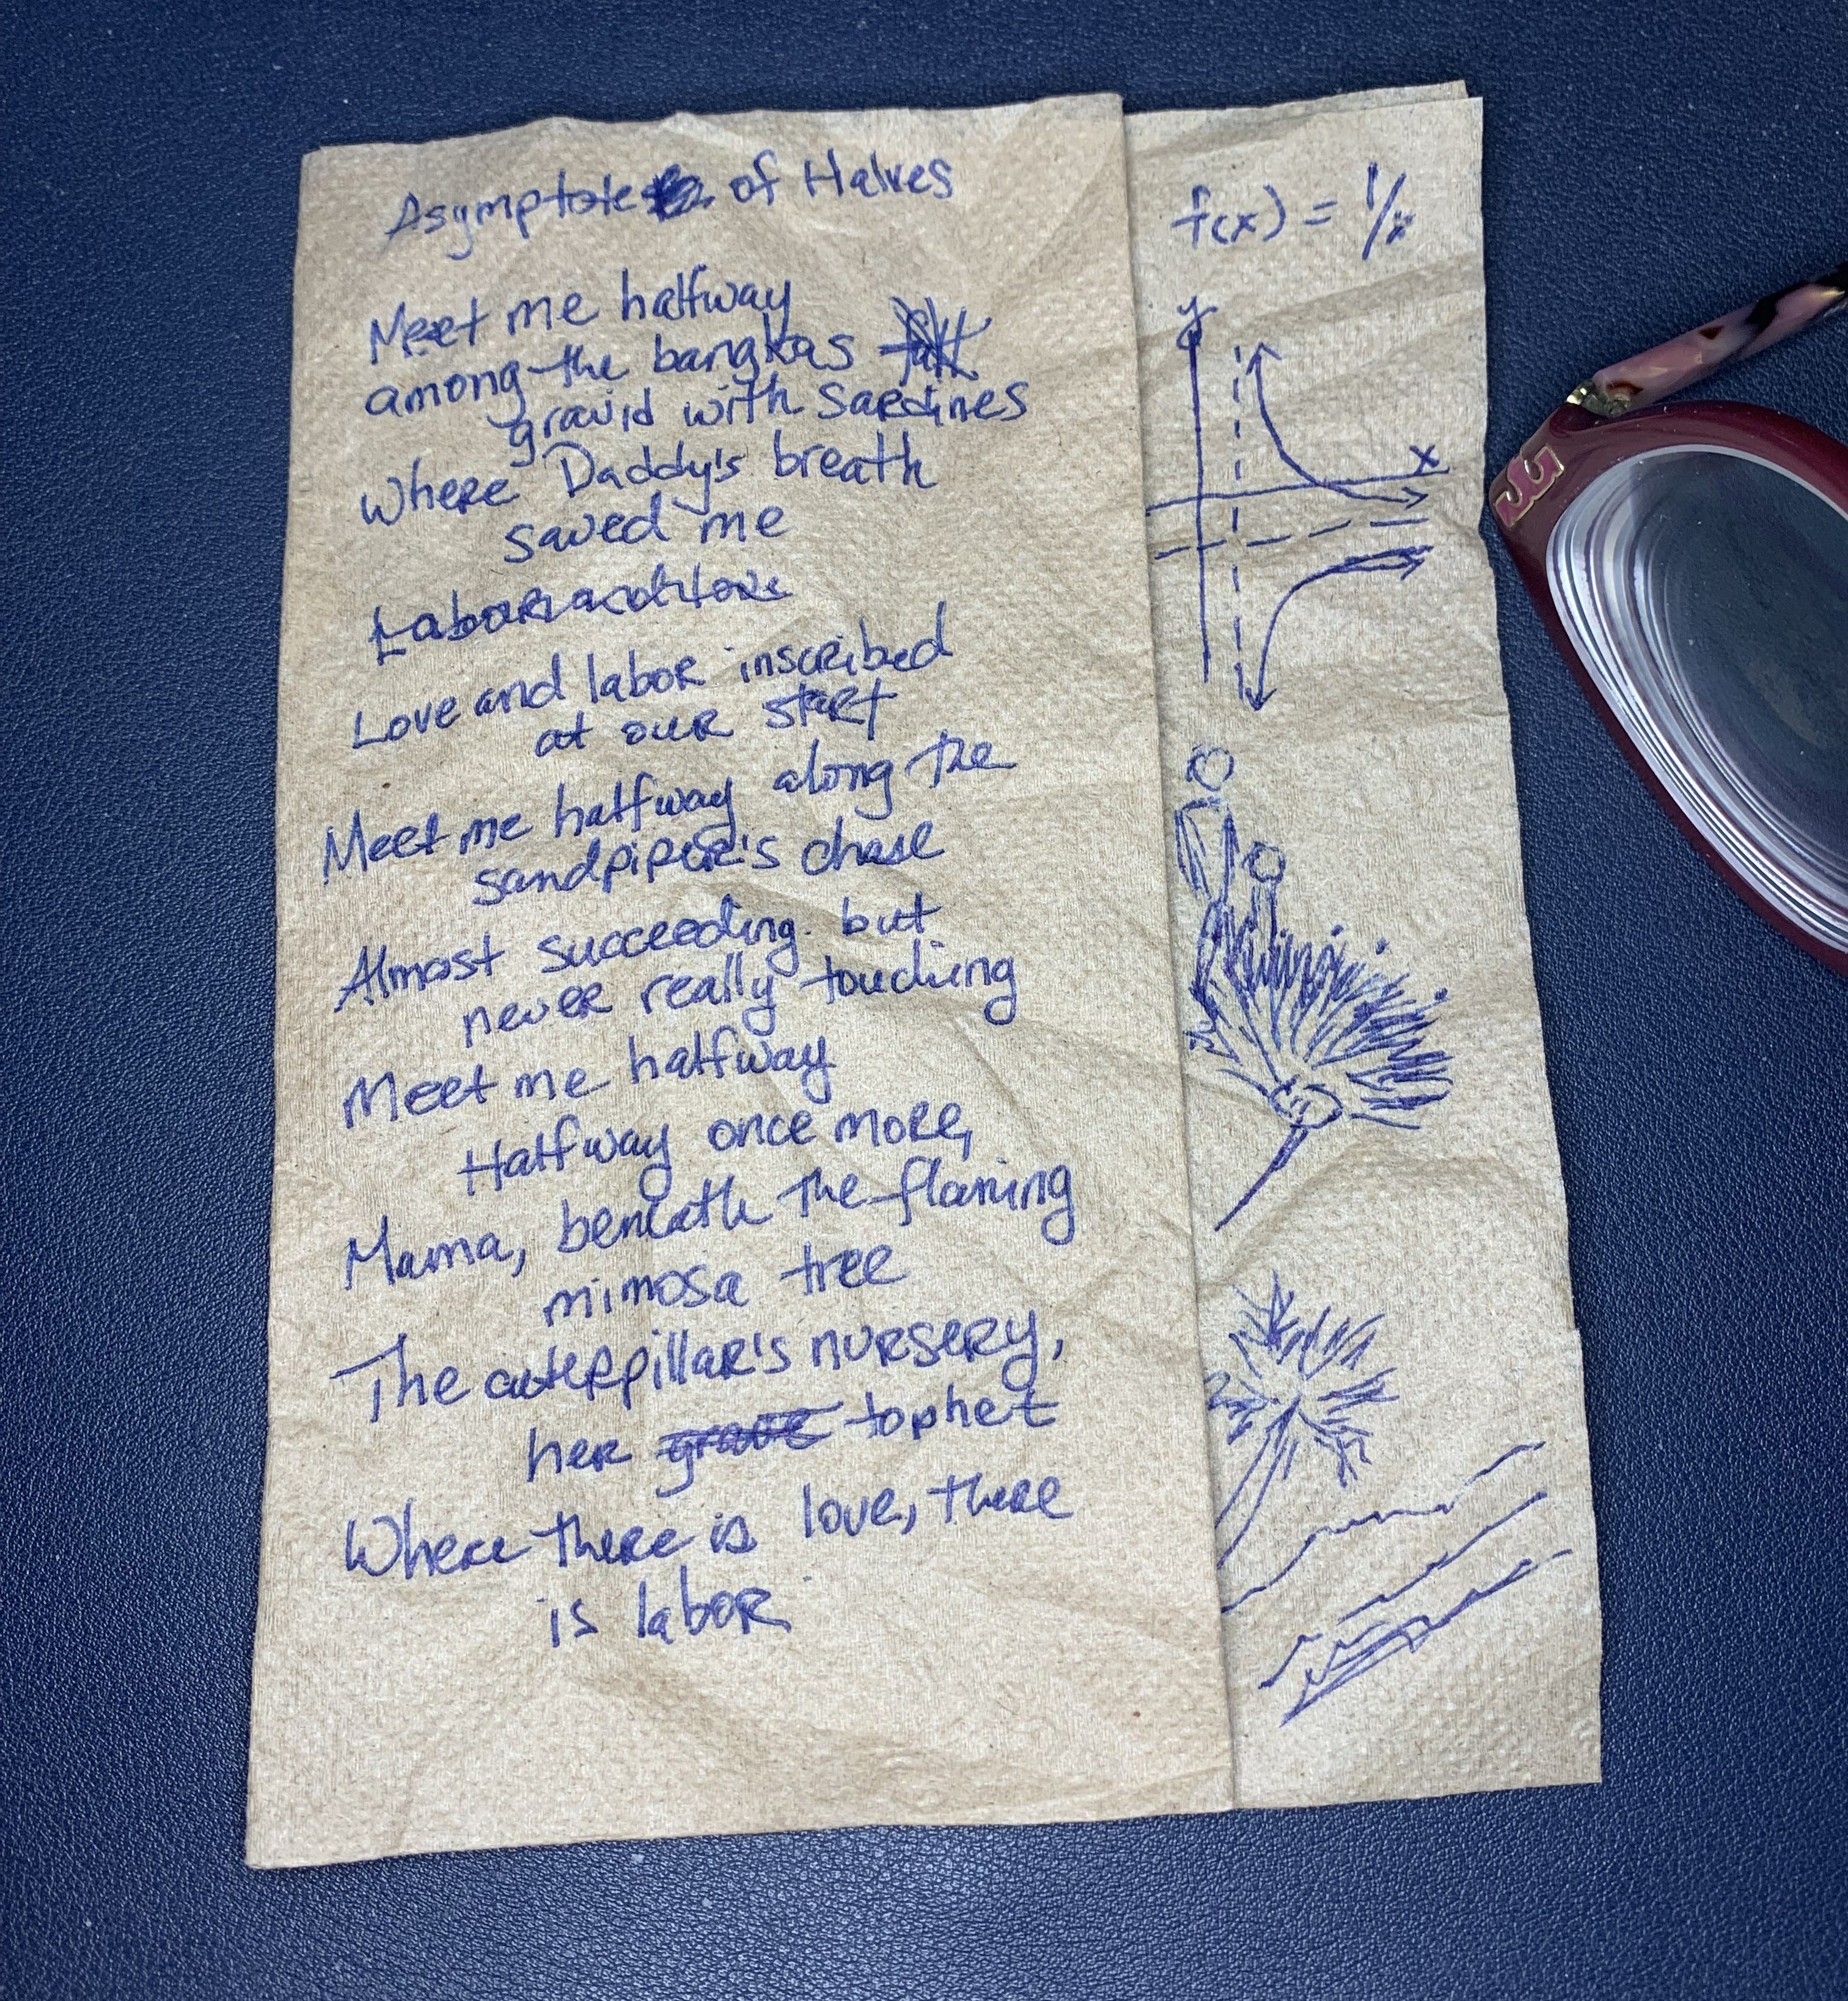 Asymptote of Halves
Meet me halfway
among the bangkas
gravid with Sardines
Where Daddy's breath
saved me
Labor and love
Love and labor inscribed
at our start
Meet me halfway along the
sandpiper's chase
Almost succeeding but
never really touching
Meet me halfway
Halfway once more,
Mama, beneath the flaming
mimosa tree
The caterpillar's nursery,
her grave tophet
Where there is love, there
is labor
f(x) = 1/x
y
x